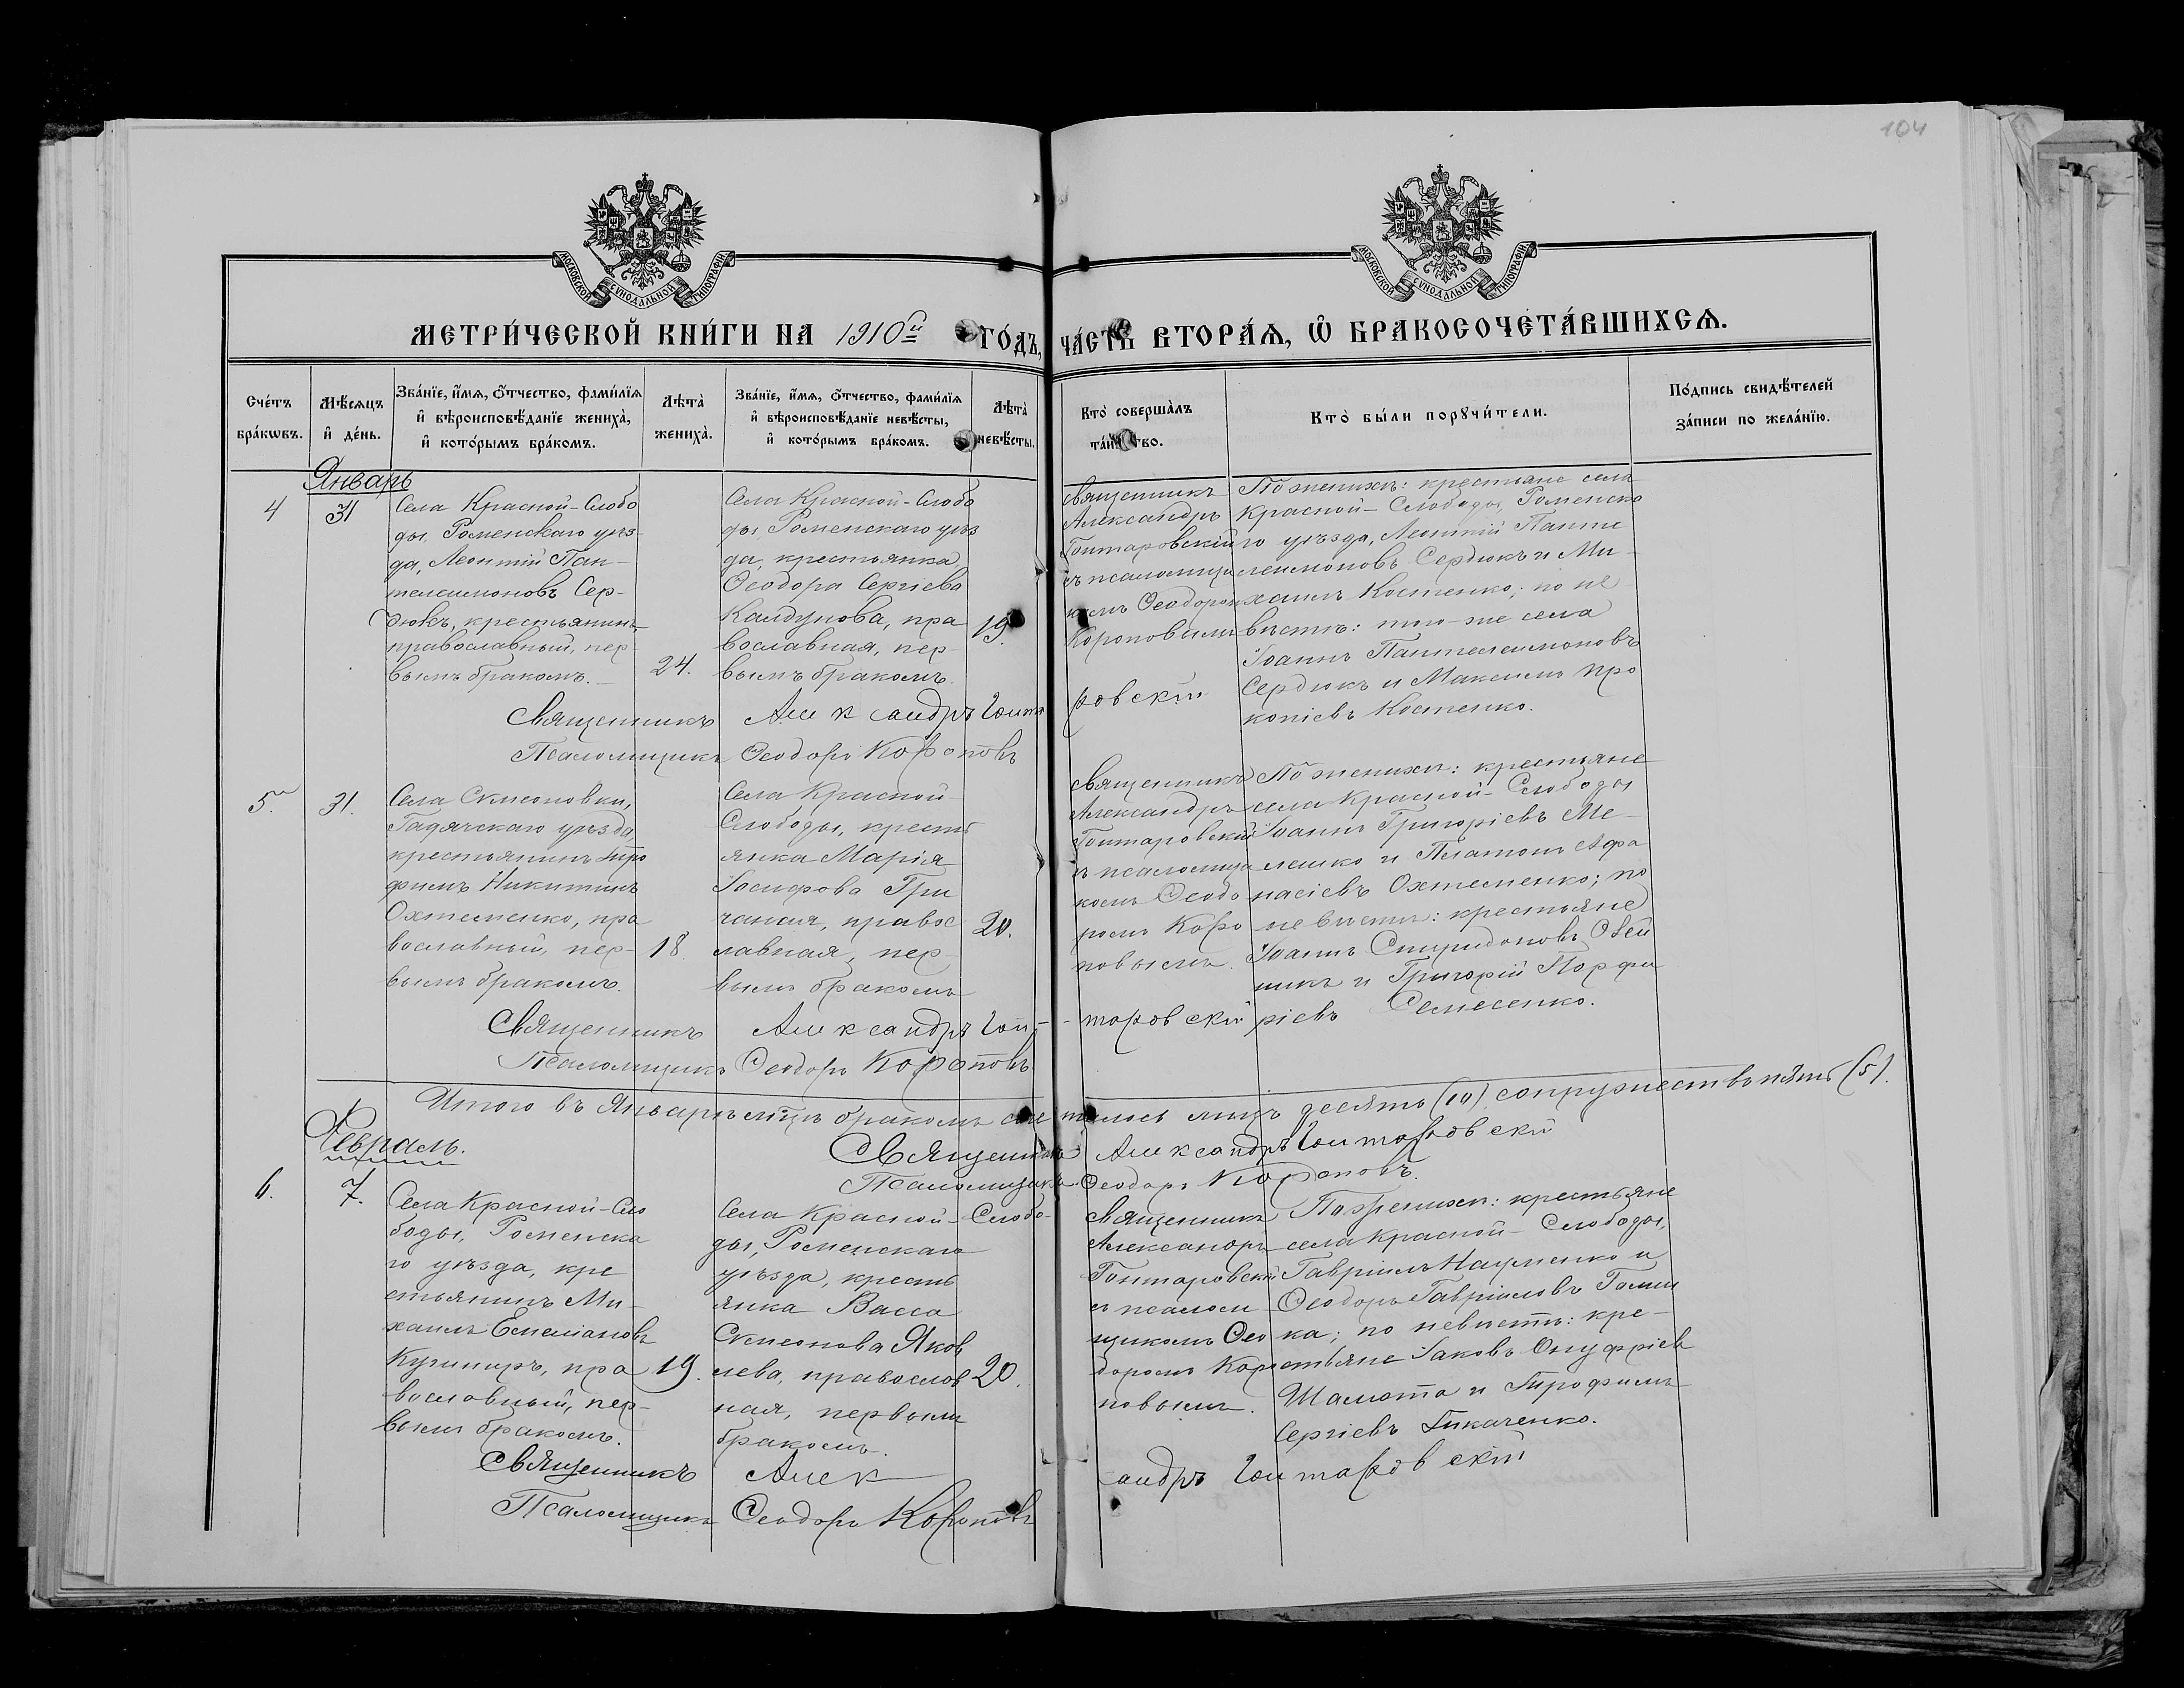 104
МОСКОВСКОЙ СУНОДАЛЬНОЙ ТИПОГРАФІИ
МОСКОВСКОЙ СУНОДАЛЬНОЙ ТИПОГРАФІИ
МЕТРИ́ЧЕСКОЙ КНИ́ГИ НА 1910й ГО́ДЪ, ЧА́СТЬ ВТОРА́Я, Ѽ БРАКОСОЧЕТА́ВШИХСЯ.
Сче́тъ бра́кѡвъ.
Мѣ́сяцъ и҆ де́нь.
Зва́нїе, и҆́мѧ, ѻ҆́тчество, фами́лїѧ и҆ вѣроисповѣ́данїе жениха̀, и҆ кото́рымъ бра́комъ.
Лѣ́та̀ жениха̀.
Зва́нїе, и҆́мѧ, ѻ҆́тчество, фами́лїѧ и҆ вѣроисповѣ́данїе невѣ́сты, и҆ кото́рымъ бра́комъ.
Лѣ́та̀ невѣ́сты.
Кто̀ соверша̀лъ та́инство.
Кто̀ бы́ли порꙋчи́тели.
По́дпись свидѣ́телей за́писи по жела́нїю.
Январь
4
31
Села Красной-Слобо
ды, Роменскаго уѣз-
да, Леонтій Пан-
телеимоновъ Сер-
дюкъ, крестьянинъ
православный, пер-
вымъ бракомъ.
24.
Села Красной-Слобо
ды, Роменскаго уѣз
да, крестьянка,
Ѳеодора Сергіева
Калдунова, пра
вославная, пер-
вымъ бракомъ.
19.
Священникъ
Александръ
Гонтаровскій
съ псаломщи
комъ Ѳеодоромъ
Короповымъ
По женихѣ: крестьяне села
Красной-Слободы, Роменска
го уѣзда, Леонтій Панте
леимоновъ Сердюкъ и Ми-
хаилъ Костенко; по не
вѣстѣ: того-же села
Іоаннъ Пантелеимоновъ
Сердюкъ и Максимъ Про
копіевъ Костенко.
Священникъ Александръ Гонта
ровскій
Псаломщикъ Ѳеодоръ Короповъ
5.
31.
Села Сѵмеоновки,
Гадячскаго уѣзда
крестьянинъ Тро
фимъ Никитинъ
Охтеменко, пра
вославный, пер-
вымъ бракомъ.
18.
Села Красной
Слободы, кресть
янка Марія
Іосифова Гри
чаная, правос
лавная, пер-
вымъ бракомъ
20.
Священникъ
Александръ
Гонтаровскій
съ псаломщи
комъ Ѳеодо
ромъ Коро
повымъ.
По женихѣ: крестьяне
села Красной-Слободы
Іоаннъ Григоріевъ Ме-
лешко и Платонъ Афа
насіевъ Охтеменко; по
невѣстѣ: крестьяне
Іоаннъ Спиридоновъ Олей
никъ и Григорій Порфи
ріевъ Семесенко.
Священникъ Александръ Гон-
таровскій
Псаломщикъ Ѳеодоръ Короповъ
Итого въ Январѣ м-цѣ бракомъ сочеталось лицъ десять (10) сопружествъ пять (5).
Священникъ Александръ Гонтаровскій
Псаломщикъ Ѳеодоръ Короповъ.
Февраль.
6.
7.
Села Красной-Сло
боды, Роменска
го уѣзда, кре
стьянинъ Ми-
хаилъ Емеліановъ
Кушниръ, пра
вославный, пер-
вымъ бракомъ.
19.
Села Красной-Слобо-
ды, Роменскаго
уѣзда, кресть
янка Васса
Сѵмеонова Яков
лева, православ
ная, первымъ
бракомъ.
20.
Священникъ
Александръ
Гонтаровскій
съ псалом
щикомъ Ѳео
доромъ Коро
повымъ.
По женихѣ: крестьяне
села Красной-Слободы,
Гавріилъ Науменко и
Ѳеодоръ Гавріиловъ
ка; по невѣстѣ: кре-
стьяне Іаковъ Онуфріевъ
Шамота и Трофимъ
Сергіевъ Ткаченко.
Священникъ Алек
сандръ Гонтаровскій
Псаломщикъ Ѳеодоръ Короповъ